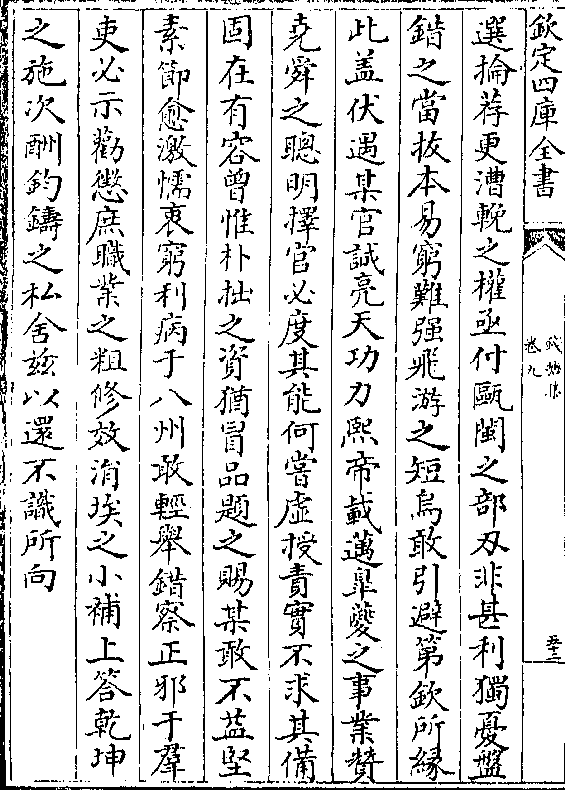 欽定四庫全書
卷九
五十三
選掄荐更漕輓之權亟付甌閩之部刃非甚利獨憂盤
錯之當拔本易窮難强飛游之短烏敢引避第欽所縁
此盖伏遇某官誠亮天功力熙帝載邁臯夔之事業贊
堯舜之聰明擇官必度其能何嘗虚授責實不求其備
固在有容曾惟朴拙之資猶冒品題之賜某敢不益堅
素節愈激懦衷窮利病于八州敢輕舉錯察正邪于羣
吏必示勸懲庶職業之粗修效涓埃之小補上答乾坤
之施次酬鈞鑄之私舍兹以還不識所向